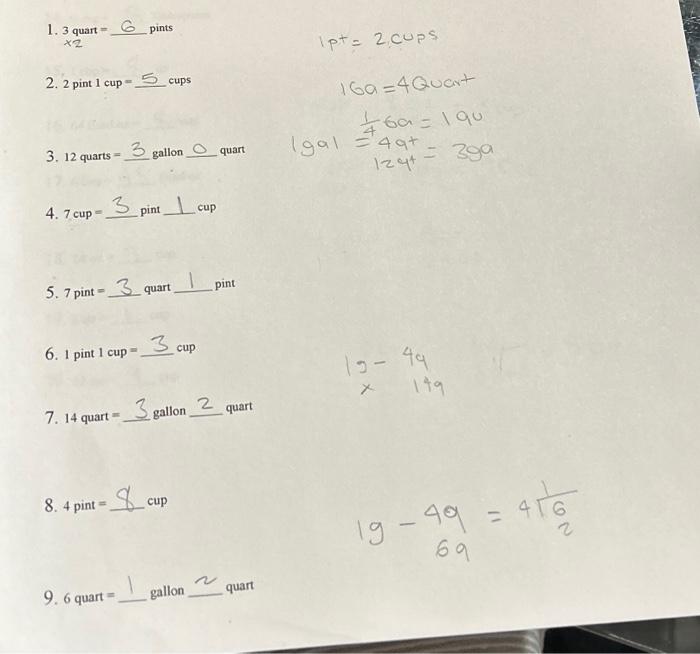 1. 3 quart = 6 pints
x2
1pt = 2 cups
2. 2 pint 1 cup = 5 cups
1Ga = 4 Quart
1/4 Ga = 1 qu
1gal = 4qt
3. 12 quarts = 3 gallon 0 quart
12qt = 3ga
4. 7 cup = 3 pint 1 cup
5. 7 pint = 3 quart 1 pint
6. 1 pint 1 cup = 3 cup
1g - 4q
x 14q
7. 14 quart = 3 gallon 2 quart
8. 4 pint = 8 cup
1
1g - 4q = 4√6
6q 2
9. 6 quart = 1 gallon 2 quart